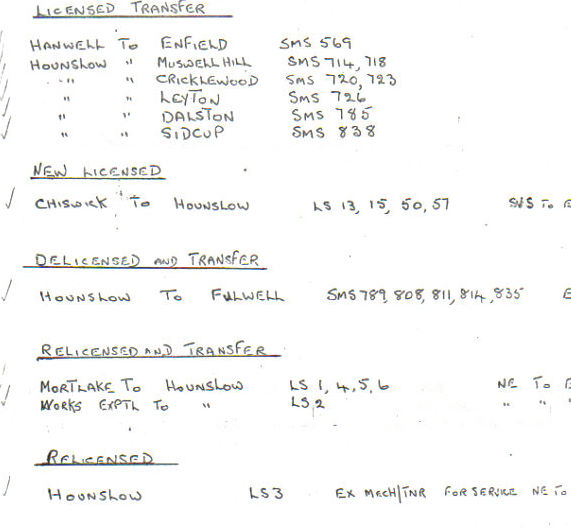 LICENSED TRANSFER
HANWELL To ENFIELD SMS 569
HOUNSLOW " MUSWELL HILL SMS 714, 718
" " CRICKLEWOOD SMS 720, 723
" " LEYTON SMS 726
" " DALSTON SMS 785
" " SIDCUP SMS 838
NEW LICENSED
CHISWICK To HOUNSLOW LS 13, 15, 50, 57 SVS To
DELICENSED AND TRANSFER
HOUNSLOW To FULWELL SMS 789, 808, 811, 814, 835
RELICENSED AND TRANSFER
MORTLAKE To HOUNSLOW LS 1, 4, 5, 6 NE To
WORKS EXPTL To " LS 2 " "
RELICENSED
HOUNSLOW LS3 EX MECH/TNR FOR SERVICE NE To